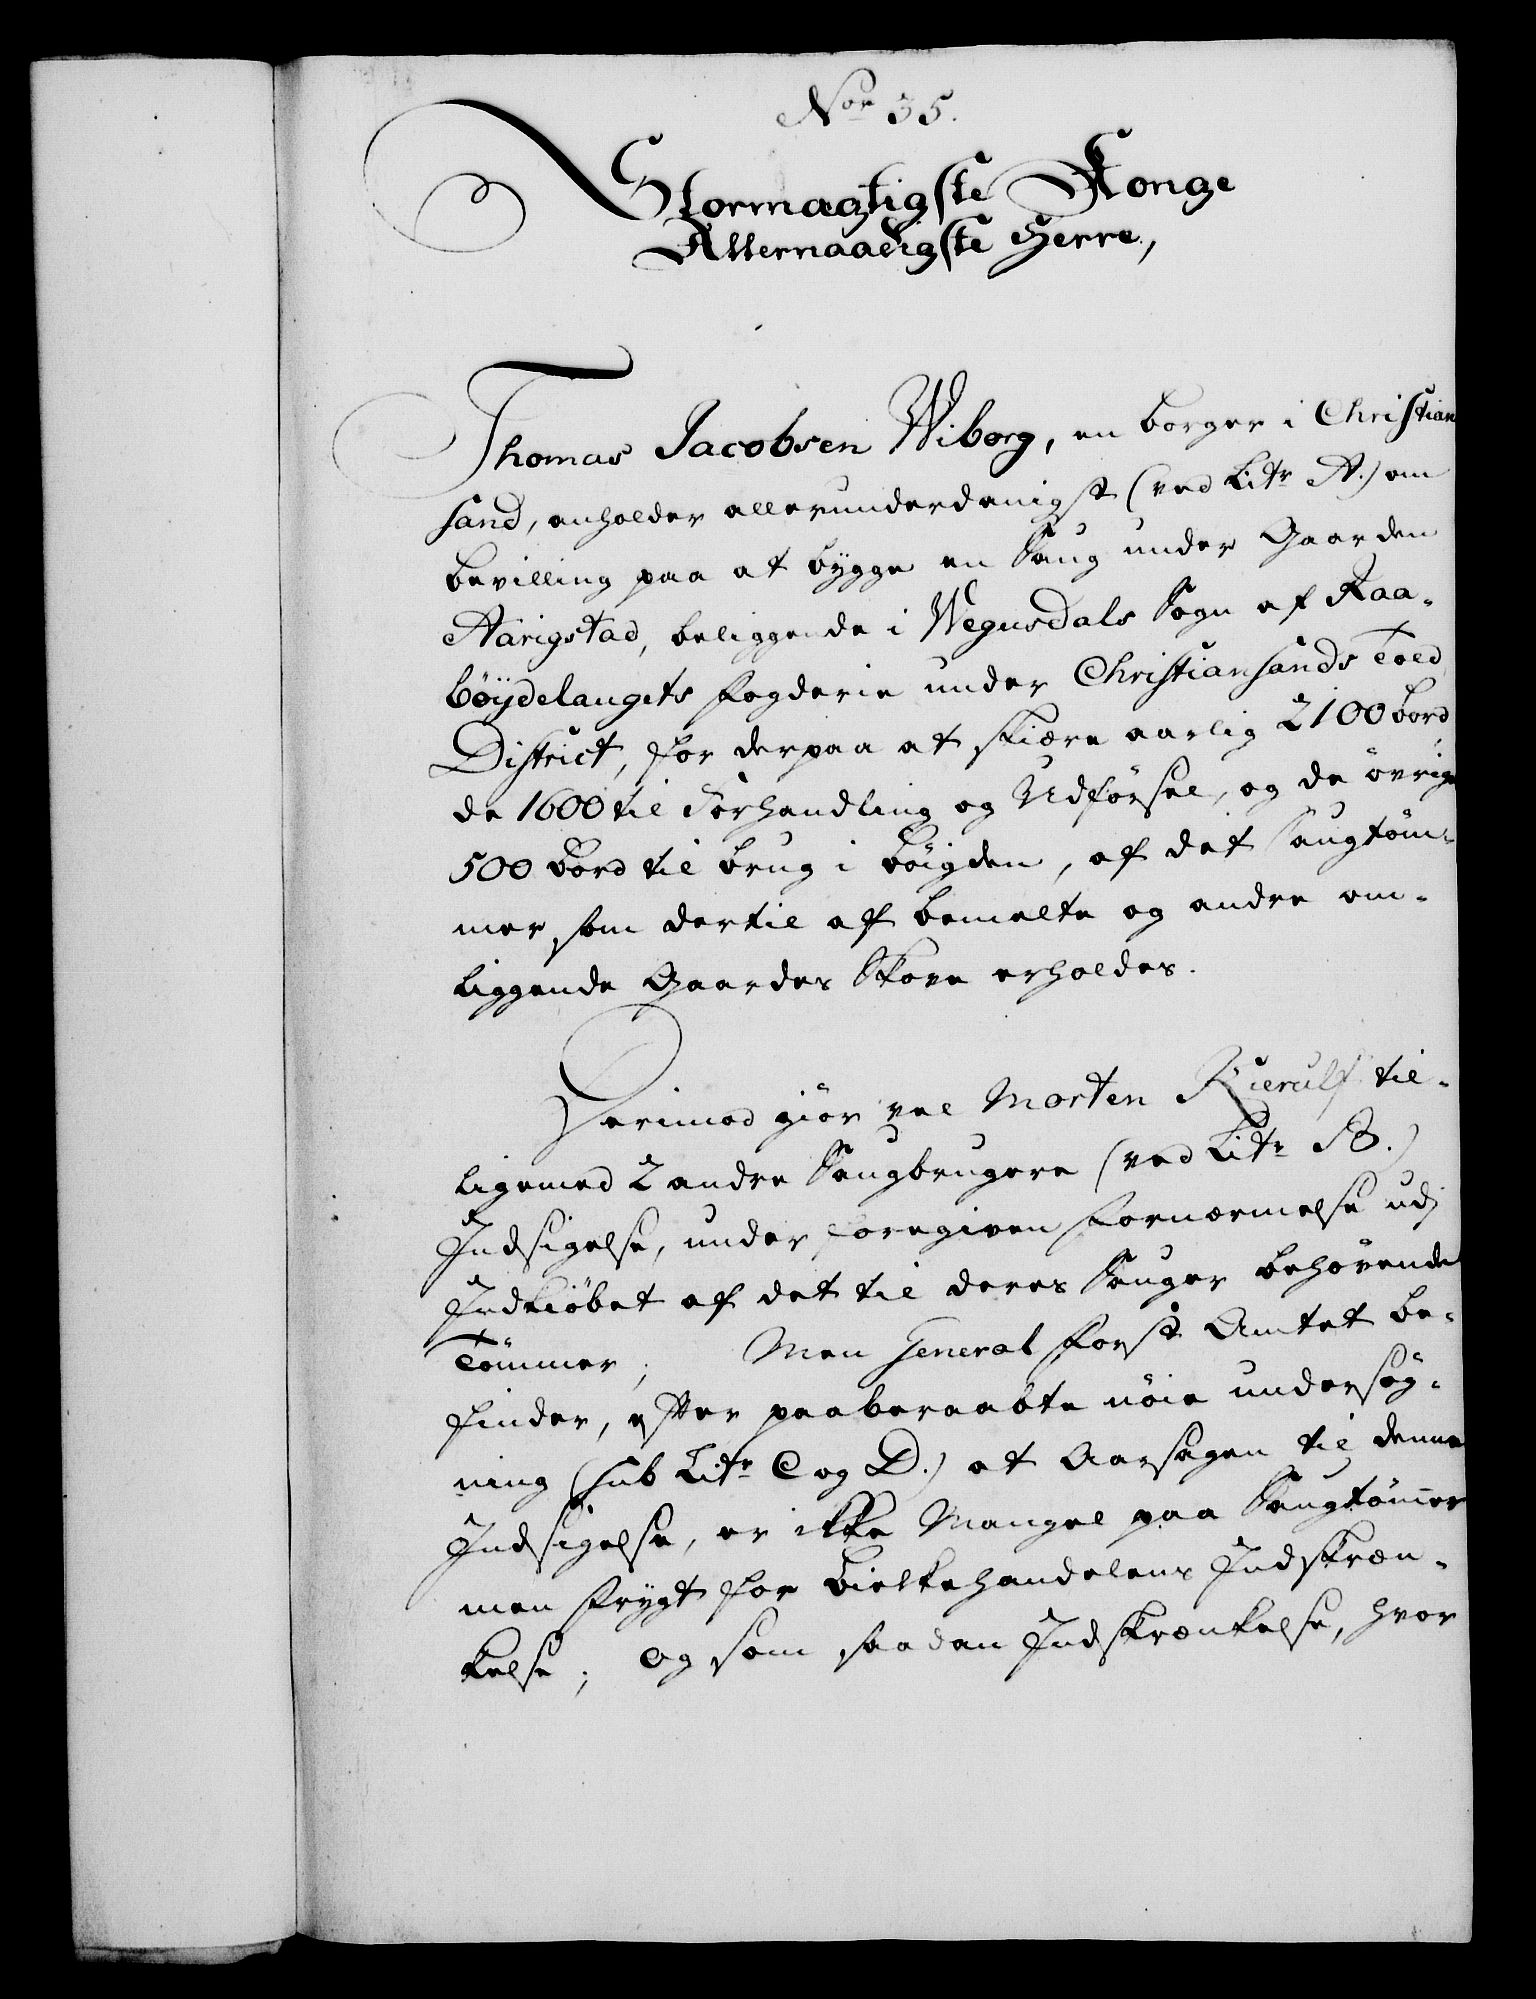 Nor 35.
Stormægtigste Konge
Allernaadigste Herre,
Thomas Jacobsen Wiborg, en borger i Christian
sand, anholder allerunderdanigst (ved Litr A.) om
bevilling paa at bygge en Saug under Gaarden
Aarigstad, beliggende i Wegusdals Sogn af Raa-
böÿdelaugets fogderie under Christiansands Told
District, for derpaa at skiære aarlig 2100 bord,
de 1600 til Forhandling og Udförsel, og de övrige
500 bord til brug i böigden, af det Saugtöm-
mer, som dertil af bemelte og andre om-
liggende Gaardes Skove erholdes.
Herimod giör vel Morten Kierulf til-
ligemed 2 andre Saugbrugere (ved Litr B.)
Indsigelse, under foregiven fornærmelse udj
Indkiöbet af det til deres Sauger behövende
Tömmer; Men General forst Amtet be-
finder, efter paaberaabte nöie undersög-
ning (sub Litr C og D.) at Aarsagen til denne
Indsigelse, er ikke Mangel paa Saugtöm̅er
men frygt for Bielkehandelens Indskræn-
kelse; Og som saadan Indskrænkelse, hvor